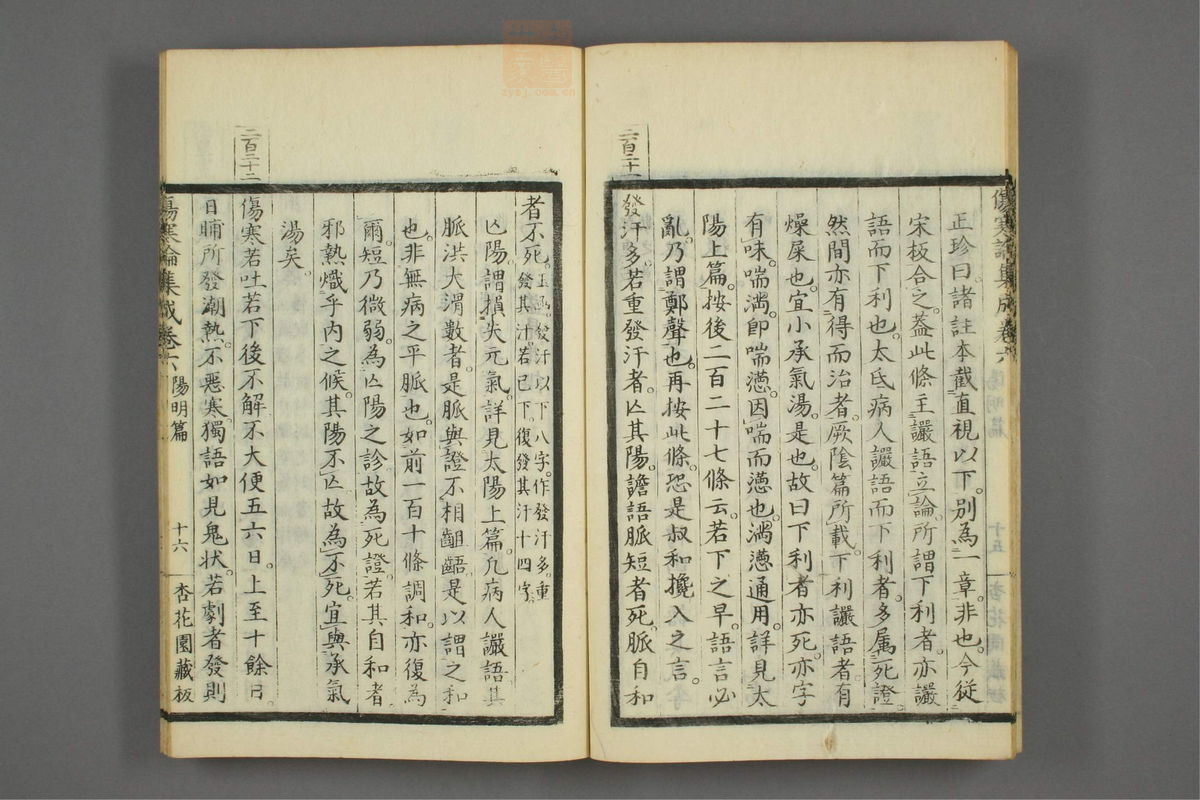 二百二十一
正珍曰。諸註本截直視以下。別為一章。非也。今從
宋板合之。蓋此條主讝語立論。所謂下利者。亦讝
語而下利也。太氐病人讝語而下利者。多属死證。
然間亦有得而治者。厥陰篇所載。下利讝語者。有
燥屎也。宜小承氣湯。是也。故曰下利者亦死。亦字
有味。喘滿。即喘懣。因喘而懣也。滿懣通用。詳見太
陽上篇。按後二百二十七條云。若下之早。語言必
亂。乃謂鄭聲也。再按此條。恐是叔和攙入之言。
發汗多。若重發汗者。亾其陽。譫語脈短者死。脈自和
傷寒論集成卷六
陽明篇
十五
杏花園藏板
二百二十二
者不死。
玉函。發汗以下八字。作發汗多。重
發其汗。若已下。復發其汗十四字。
亾陽。謂損失元氣。詳見太陽上篇。凡病人讝語其
脈洪大滑數者。是脈與證不相齟齬。是以謂之和
也。非無病之平脈也。如前一百十條調和。亦復為
爾。短乃微弱。為亾陽之診。故為死證。若其自和者
邪熱熾乎內之候。其陽不亾。故為不死。宜與承氣
湯矣。
傷寒若吐若下後不解。不大便五六日。上至十餘日。
日晡所發潮熱。不惡寒。獨語如見鬼狀。若劇者發則
傷寒論集成卷六
陽明篇
十六
杏花園藏板